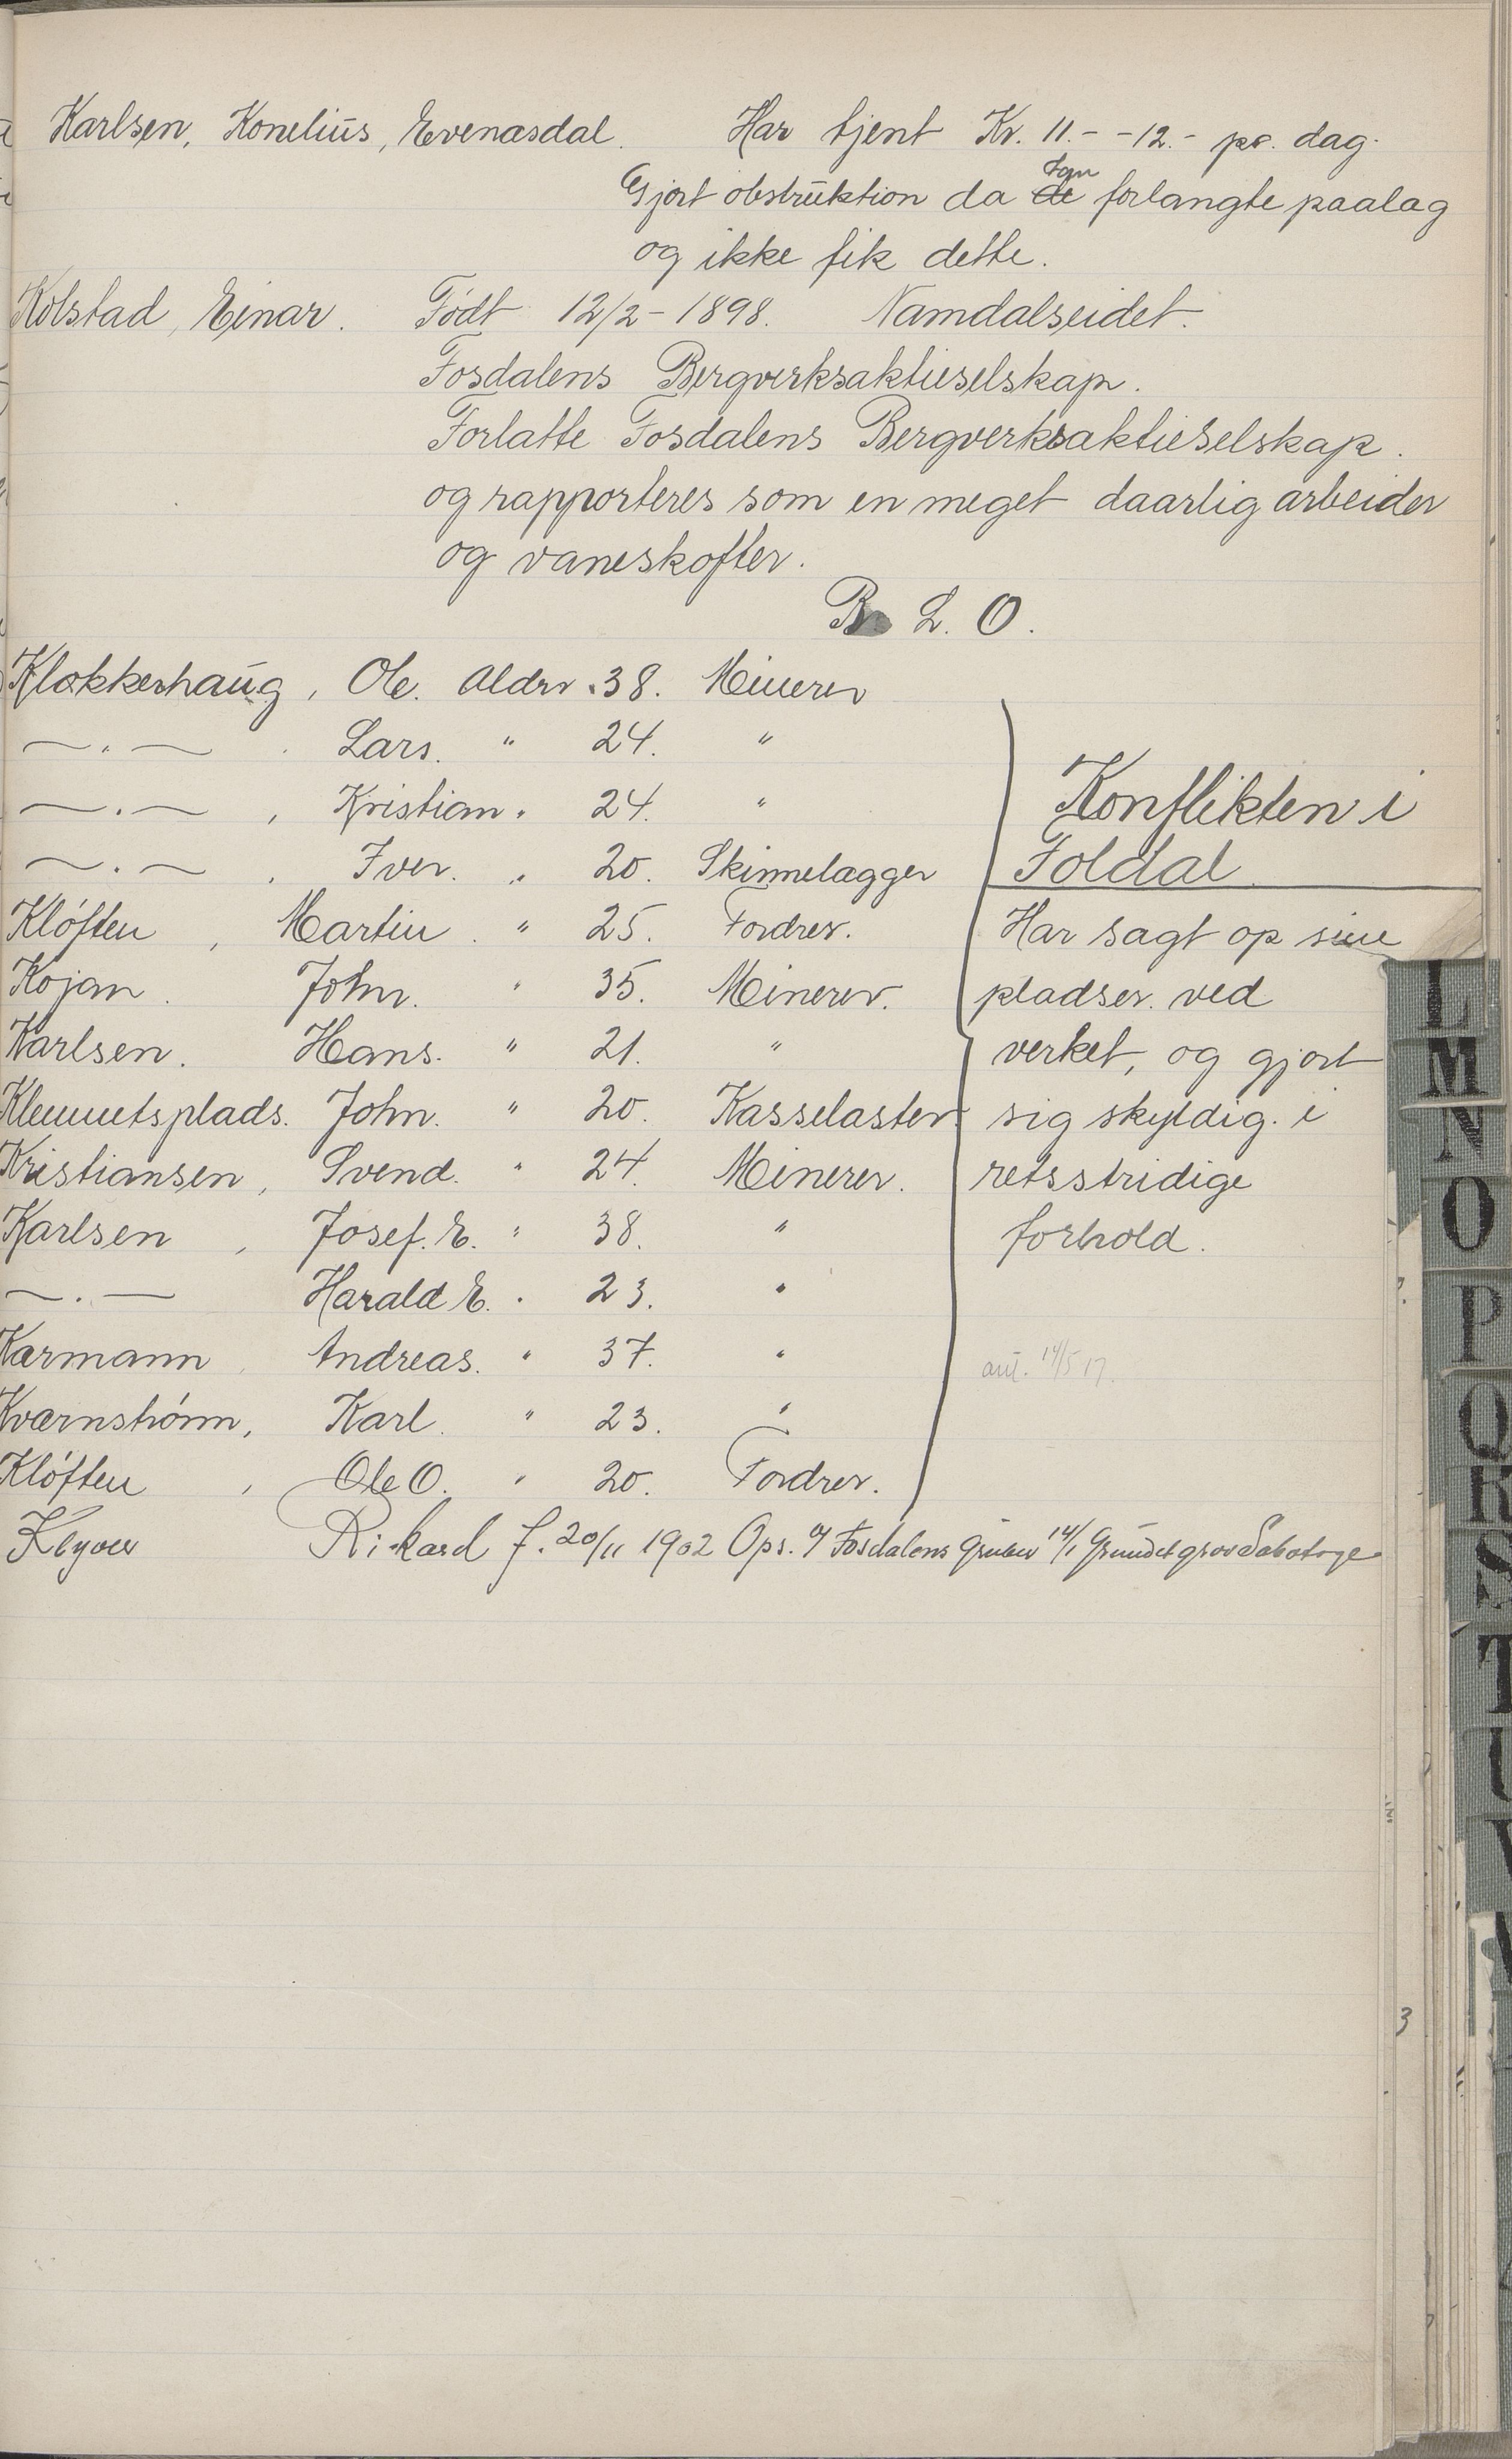 Karlsen, Konelius, Evenæsdal. Har tjent Kr. 11.- -12.- pr. dag.
Gjort obstruktion da de forlangte paalag
og ikke fik dette.
Kolstad, Einar. Født 12/2-1898. Namdalseidet.
Fosdalens Bergverksaktieselskap.
Forlatte Fosdalens Bergverksaktieselskap.
og rapporteres som en meget daarlig arbeider
og vaneskofter.
B. L. O.
Klokkerhaug, Ole. Alder. 38. Minerer
—.— . Lars. " 24. "
—.— , Kristian " 24. "
—.— . Iver. " 20. Skinnelægger
Kløften, Martin. " 25. Fordrer.
Kojan. John. " 35. Minerer.
Karlsen. Hans. " 21. "
Klemmetsplads. John. " 20. Kasselaster.
Kristiansen, Svend. " 24. Minerer.
Karlsen, Josef. E. " 38. "
—.— Harald E. " 23. "
Kærmann, Andreas. " 37. "
Kværnstrøm, Karl. " 23. "
Kløften, Ole O. " 20. Fordrer.
Konflikten i
Foldal.
Har sagt op sine
pladser ved
verket, og gjort
sig skyldig i
retsstridige
forhold.
14/5 17.
Rikard f. 20/11 1902 Ops. Fosdalens Gruber 14/1 Grundet grov Sabotage
L
M
N
O
P
Q
R
S
T
U
V
3